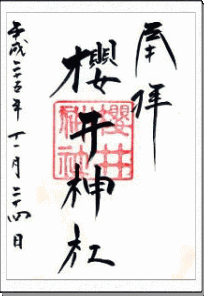 奉拝
櫻井神社
櫻井神社
平成二十五年十一月二十四日